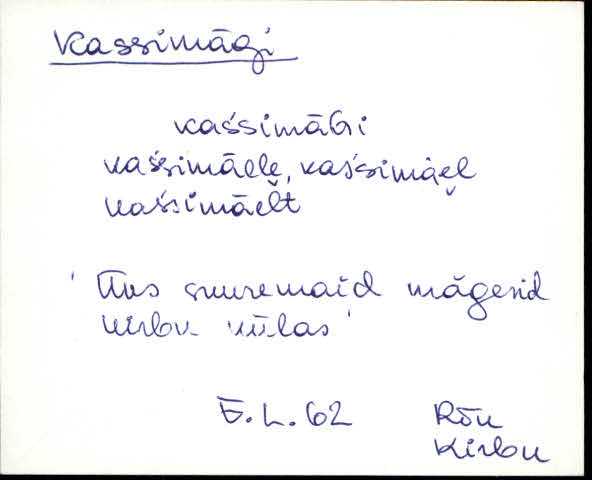 Kassimägi
kaśsimäGi
kaśsimäele, kaśsimäel
kaśsimäelt
'Üks suuremaid mägesid
Kirbu külas'
E. L. 62 Rõu
Kirbu